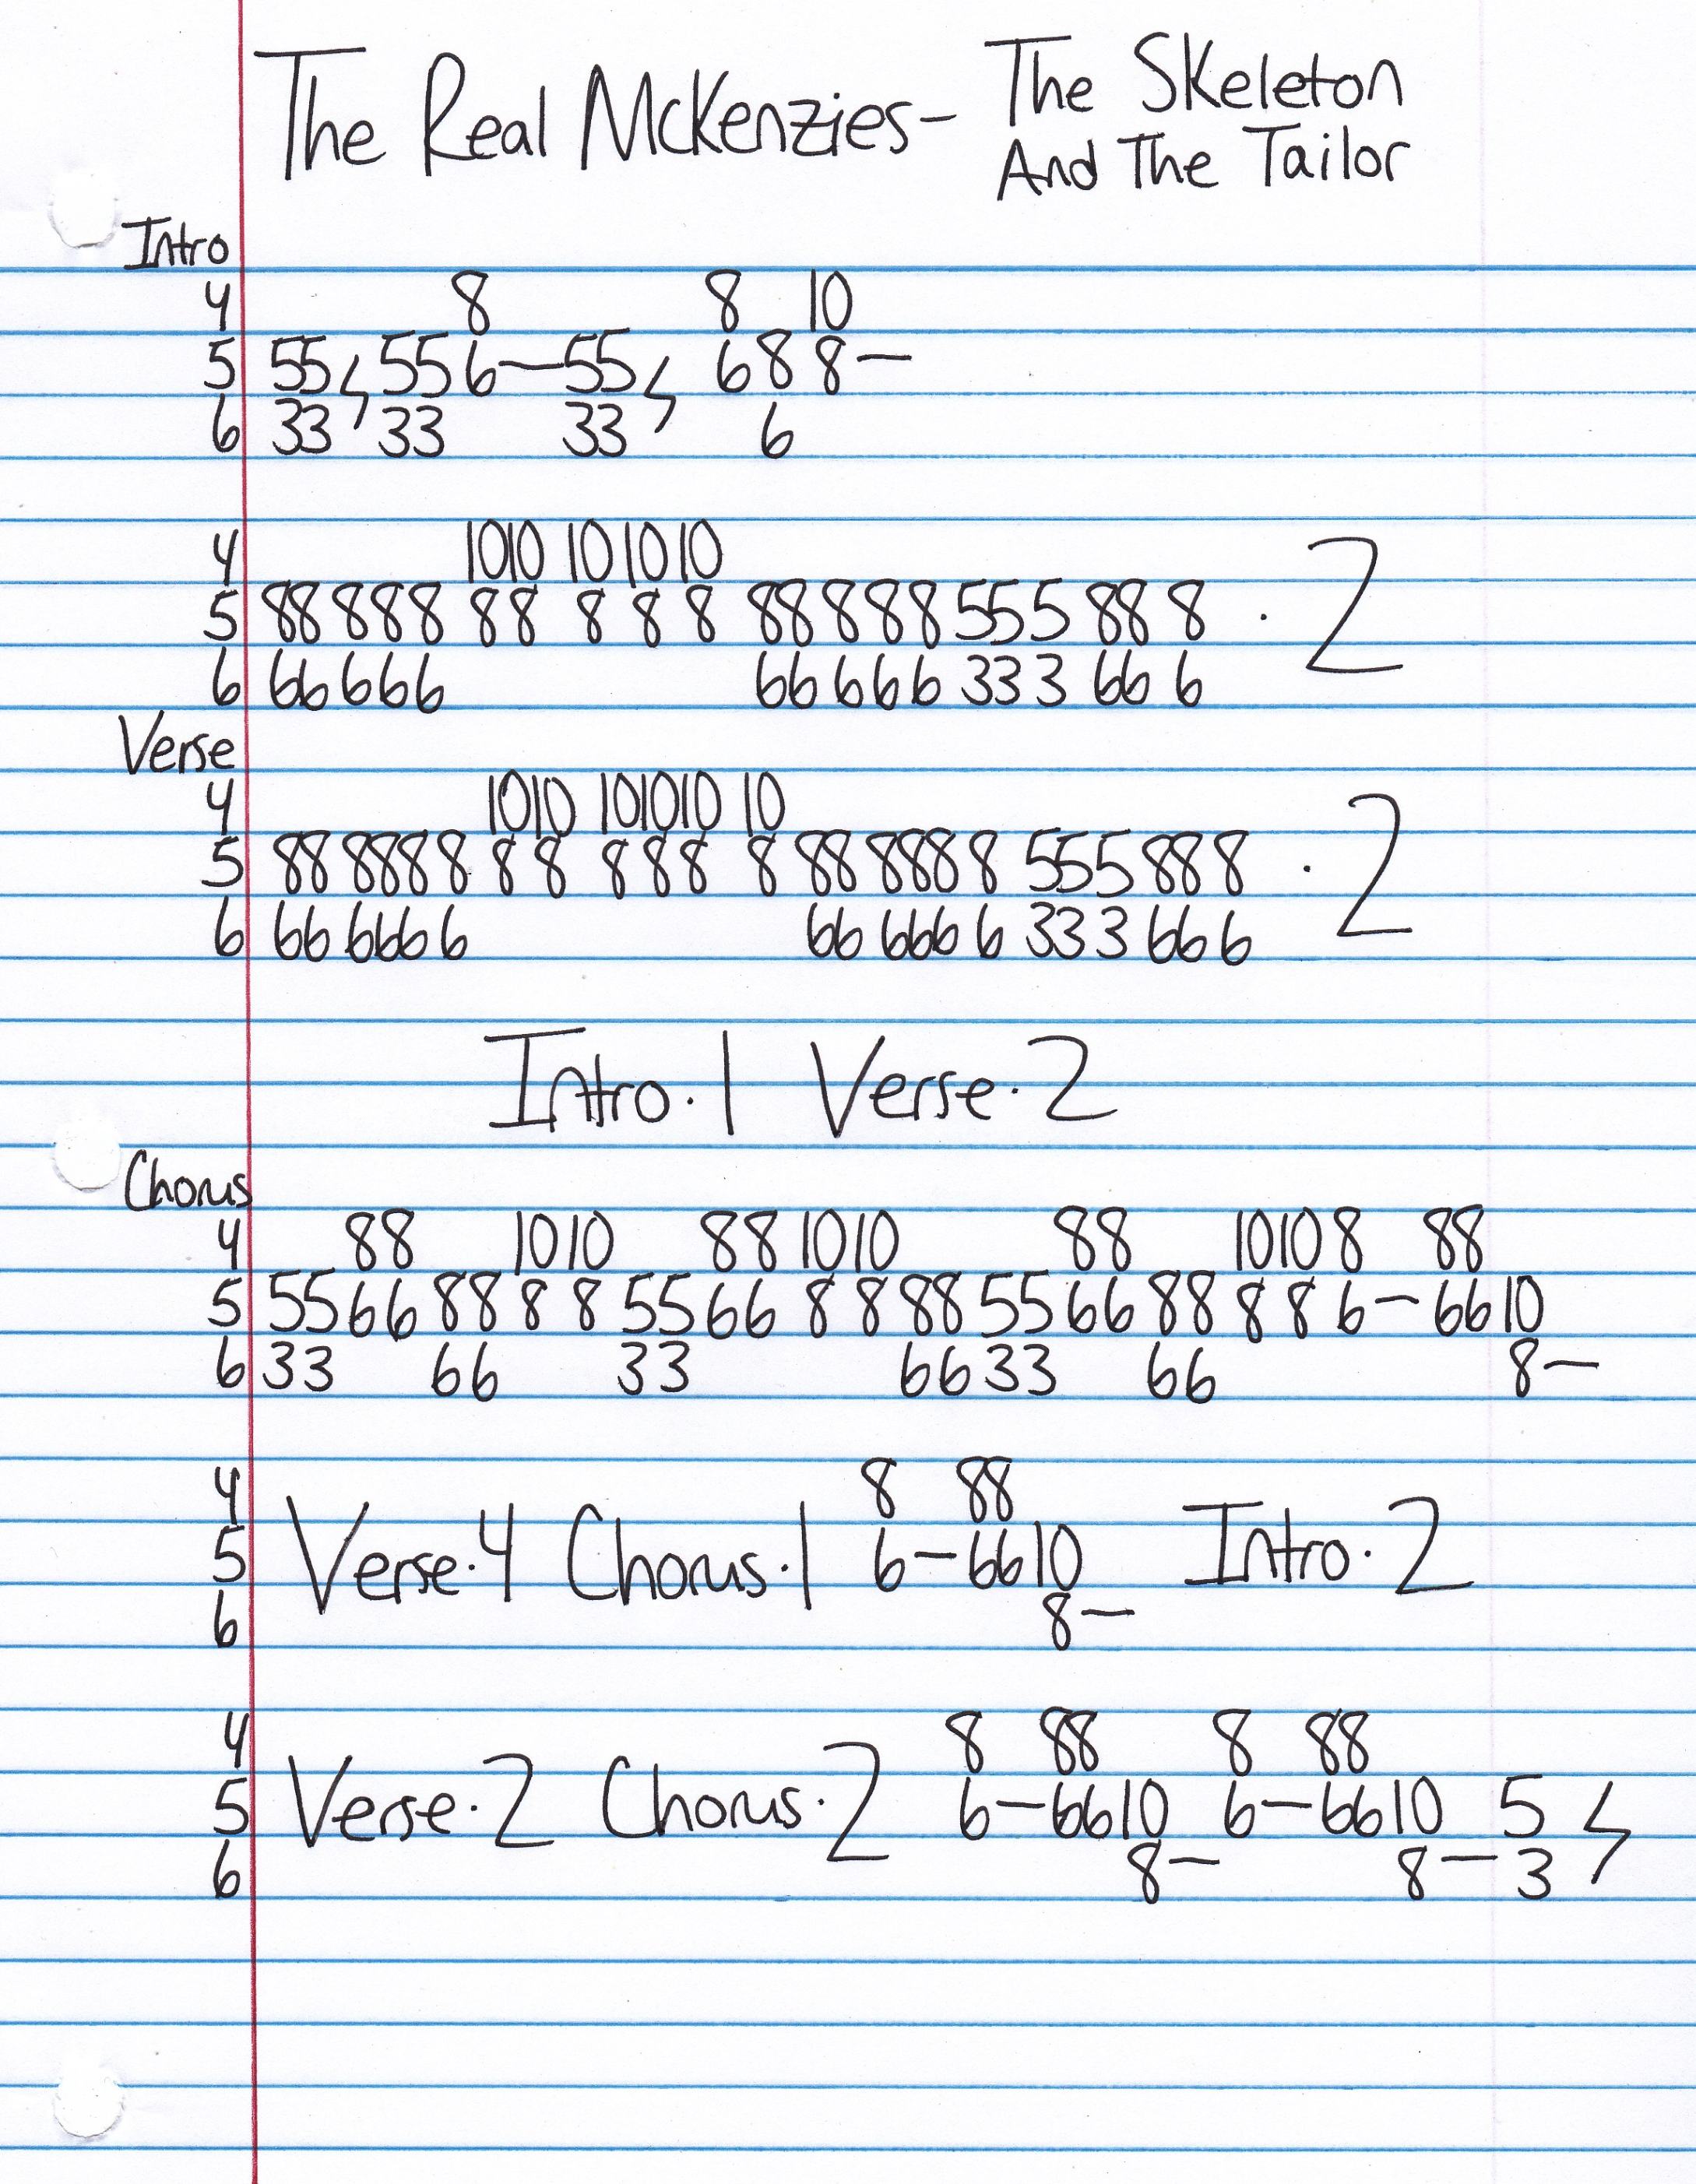 The Real McKenzies - The Skeleton
And The Tailor
Intro
4 8 8 10
5 55 55 6 — 55 6 8 8 —
6 33 33 33 6
4 10 10 10 10 10
5 88 888 88 8 8 8 88 888 555 88 8 · 2
6 66 666 66 666 33 3 66 6
Verse
4 10 10 10 10 10 10
5 88 888 8 8 8 8 8 8 8 88 888 8 555 888 · 2
6 66 666 6 66 666 6 33 3 66 6
Intro · 1 Verse · 2
Chorus
4 88 10 10 88 10 10 88 10 10 8 88
5 55 66 88 8 8 55 66 8 8 88 55 66 88 8 8 6 — 66 10
6 33 66 33 66 33 66 8 —
4 8 88
5 Verse · 4 Chorus · 1 6 — 66 10 Intro · 2
6 8 —
4 8 88 8 88
5 Verse · 2 Chorus · 2 6 — 66 10 6 — 66 10 5
6 8 — 8 — 3